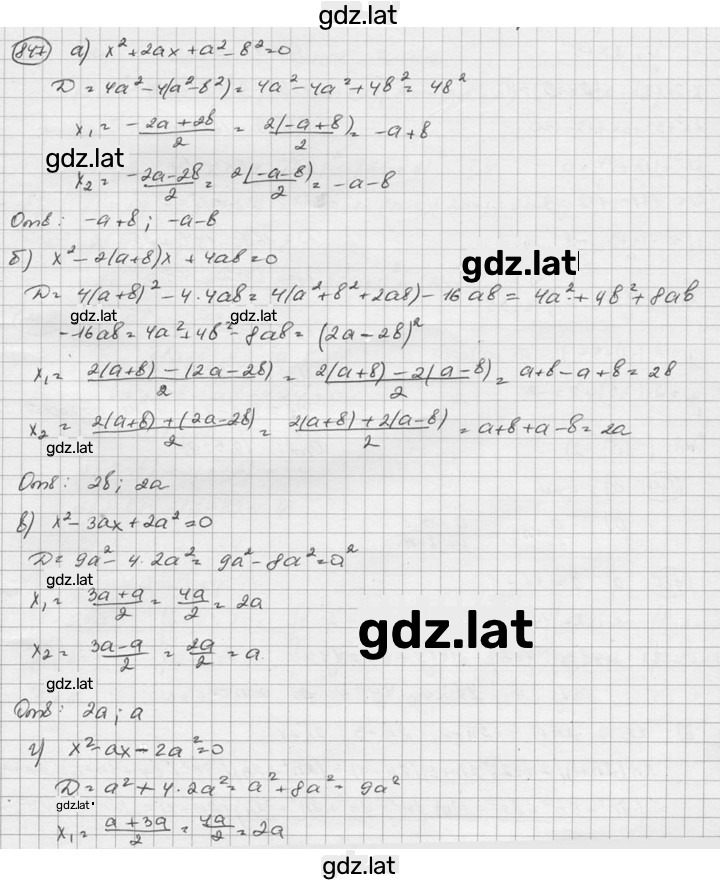 gdz.lat
847 а) x² + 2ax + a² - b² = 0
D = 4a² - 4(a² - b²) = 4a² - 4a² + 4b² = 4b²
x₁ = (-2a + 2b)/2 = 2(-a + b)/2 = -a + b
gdz.lat
x₂ = (-2a - 2b)/2 = 2(-a - b)/2 = -a - b
Отв: -a + b; -a - b
б) x² - 2(a + b)x + 4ab = 0
gdz.lat
D = 4(a + b)² - 4·4ab = 4(a² + b² + 2ab) - 16ab = 4a² + 4b² + 8ab
gdz.lat gdz.lat
- 16ab = 4a² + 4b² - 8ab = (2a - 2b)²
x₁ = (2(a + b) - (2a - 2b))/2 = (2(a + b) - 2(a - b))/2 = a + b - a + b = 2b
x₂ = (2(a + b) + (2a - 2b))/2 = (2(a + b) + 2(a - b))/2 = a + b + a - b = 2a
gdz.lat
Отв: 2b; 2a
в) x² - 3ax + 2a² = 0
D = 9a² - 4·2a² = 9a² - 8a² = a²
gdz.lat
x₁ = (3a + a)/2 = 4a/2 = 2a
gdz.lat
x₂ = (3a - a)/2 = 2a/2 = a
gdz.lat
Отв: 2a; a
г) x² - ax - 2a² = 0
D = a² + 4·2a² = a² + 8a² = 9a²
gdz.lat
x₁ = (a + 3a)/2 = 4a/2 = 2a
gdz.lat